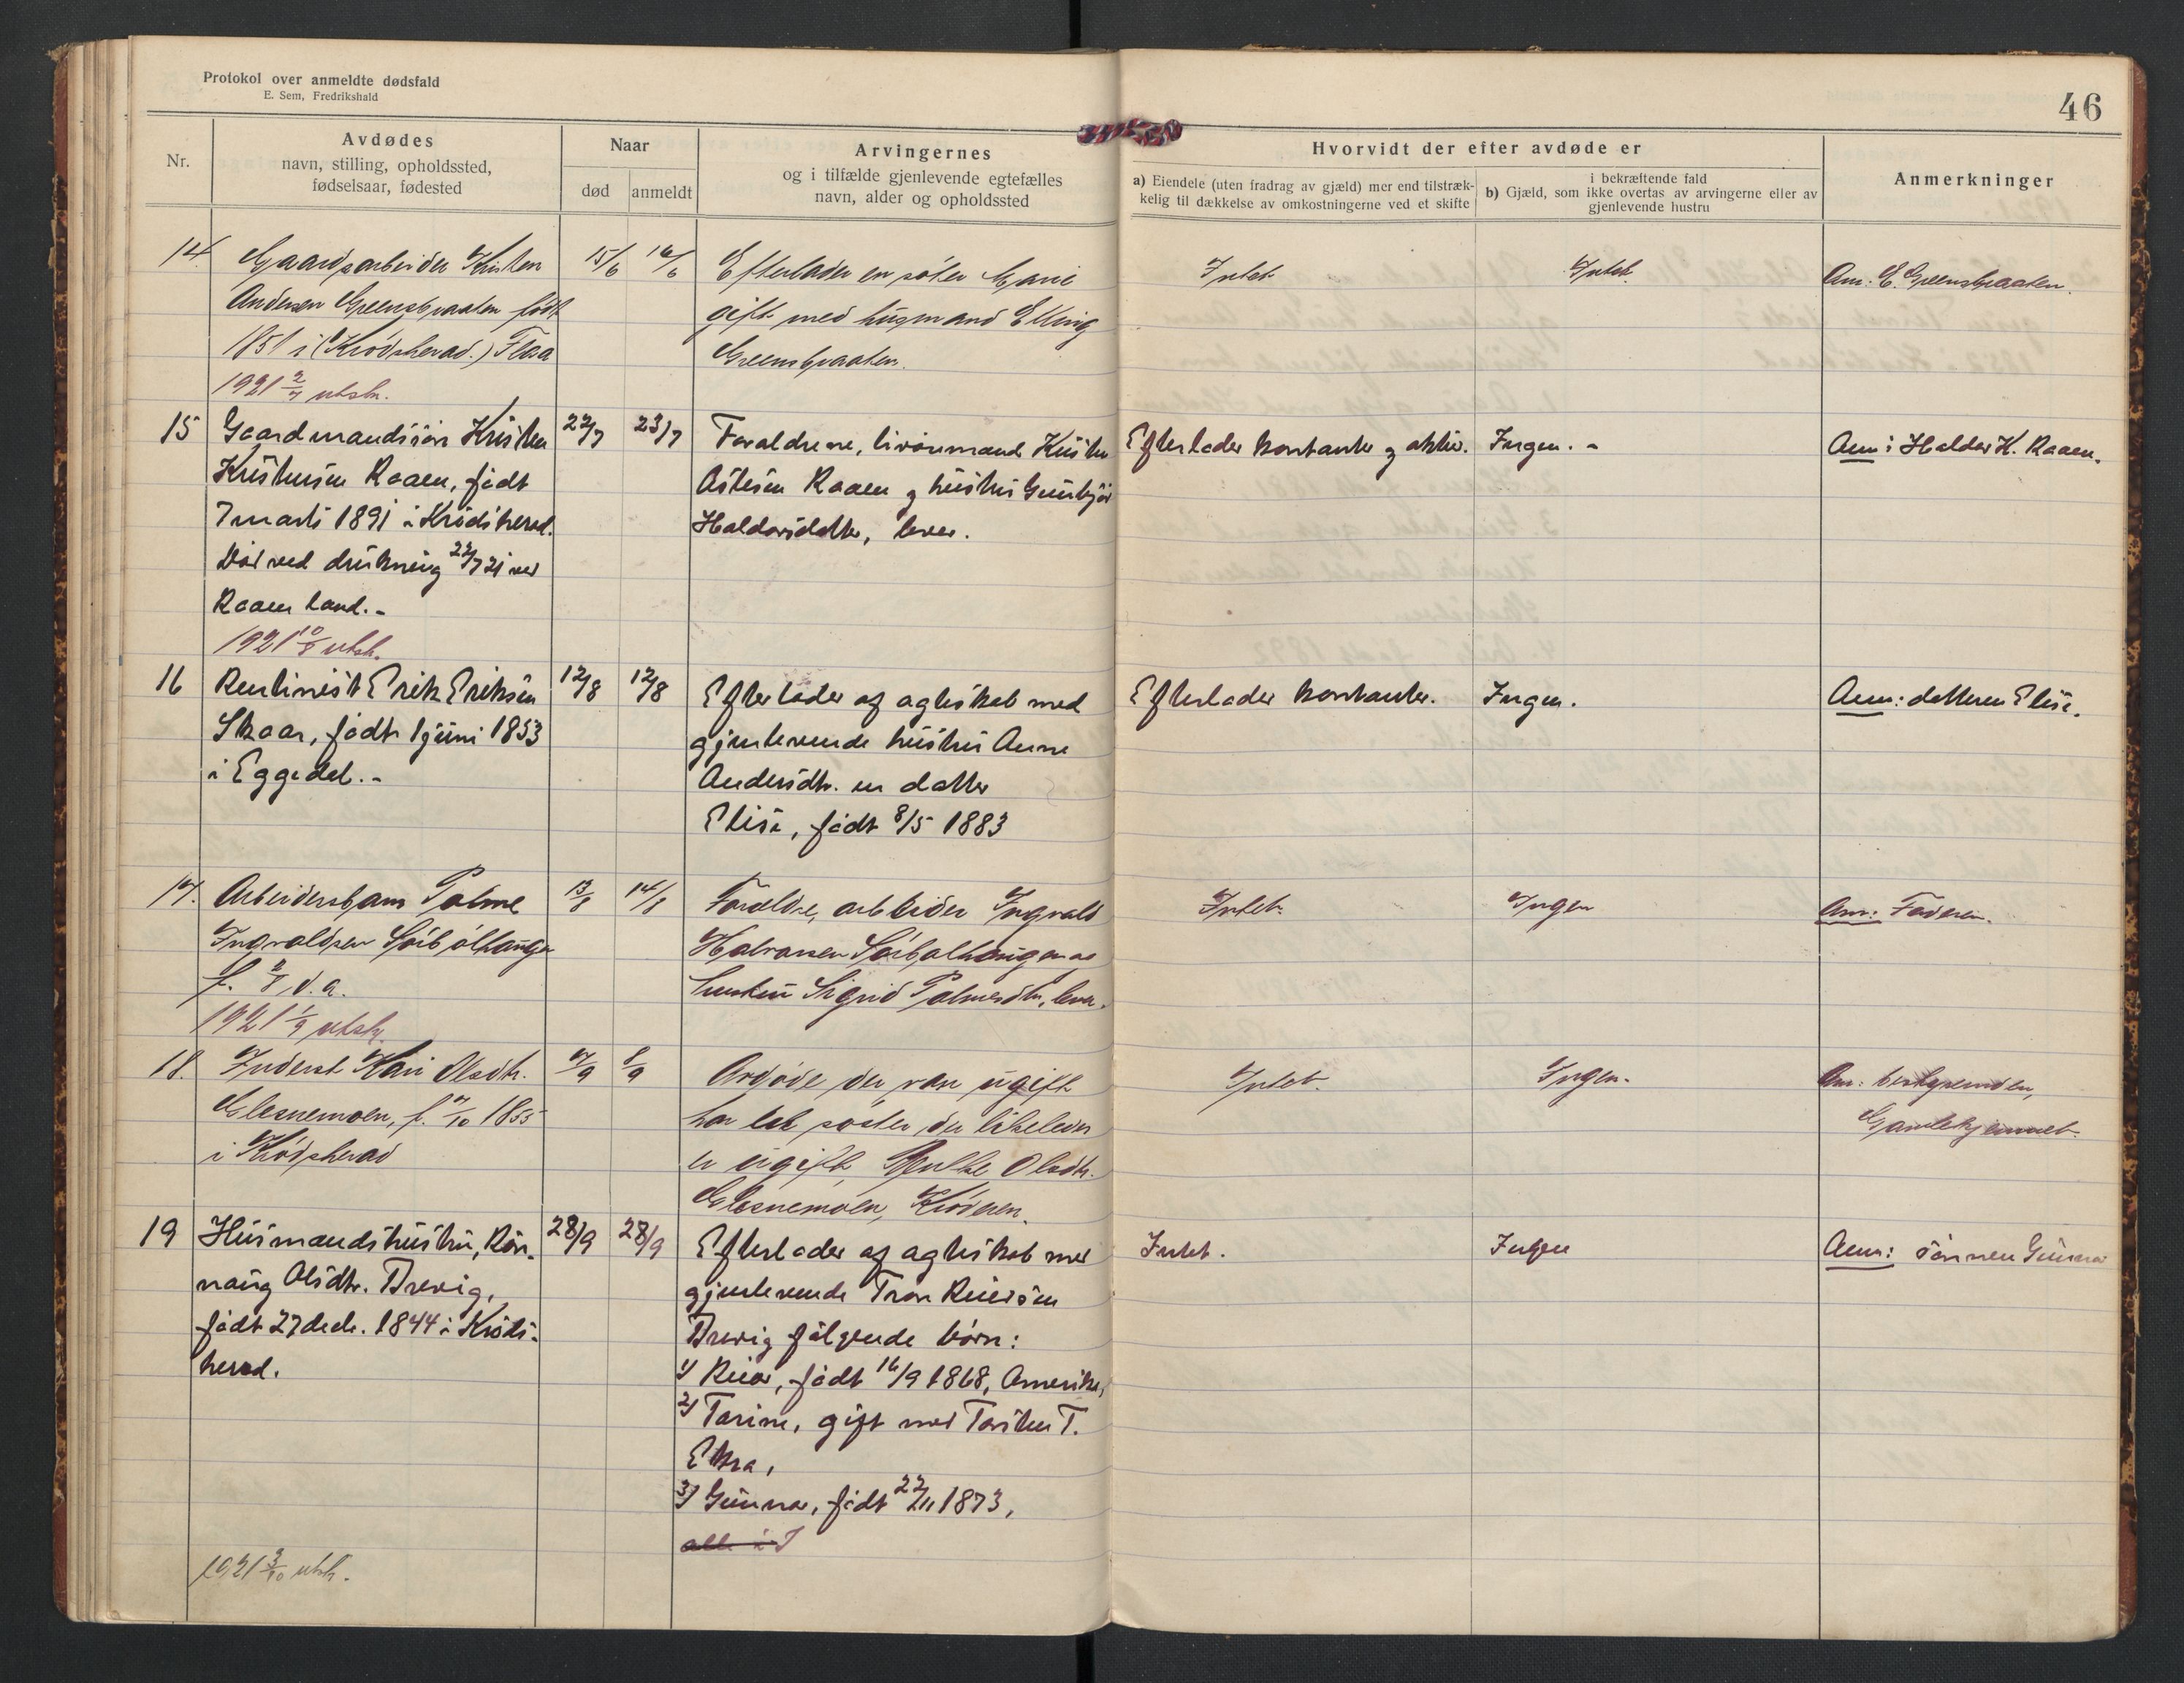 Protokol over anmeldte dødsfald
E. Sem, Fredrikshald
46
Nr.
Avdødes
navn, stilling, opholdssted,
fødselsaar, fødested
Naar
død
anmeldt
Arvingernes
og i tilfælde gjenlevende egtefælles
navn, alder og opholdssted
Hvorvidt der efter avdøde er
a) Eiendele (uten fradrag av gjæld) mer end tilstræk-
kelig til dækkelse av omkostningerne ved et skifte
i bekræftende fald
b) Gjæld, som ikke overtas av arvingerne eller av
gjenlevende hustru
Anmerkninger
14. Gaardsarbeider Kristen
Andersen Greensbraaten født
1851 i (Krødsherad.) Flesa
1921 2/7 utskr.
15/6
16/6
Efterlader en søster Marie
gift med husmand Elling
Greensbraaten.
Intet
Intet.
Anm. E. Greensbraaten.
15 Gaardmandssøn Kristen
Kristensen Raaen, født
7 marts 1891 i Krødsherad.
Død ved drukning 22/7 21 ved
Raaen land.-
1921 10/8 utskr.
22/7
23/7
Forældrene, livørmand Kristen
Astesen Raaen og hustru Gunbjør
Haldorsdatter, lever.
Efterlader kontanter og aktier.
Ingen. -
Anm: Haldor K. Raaen.
16 Rentinist Erik Eriksen
Skaar, født 1 juni 1853
i Eggedal.-
12/8
12/8
Efterlader af ægteskab med
gjenlevende hustru Anne
Andersdtr. en datter
Elise, født 8/5 1883
Efterlader kontanter.
Ingen.
Anm: datteren Elise.
17. Arbeidersbarn Palme
Ingvaldsen Sørbølhaugen
f. 2/8 d.a.
1921 1/9 utskr.
13/8
14/8
Forældre, arbeider Ingvald
Halvorsen Sørbølhaugen og
hustru Sigrid Palmesdtr. lever.
Intet.
Ingen
Anm: Faderen.
18. Inderst Kari Olsdtr.
Glesnemoen, f. 7/10 1855
i Krødsherad
7/9
8/9
Avdøde der var ugift
har en søster, der likeledes
er ugift, Olsdtr.
Glesnemoen, Krøderen.
Intet.
Ingen.
Anm: bestyrerinden,
Gamlehjemmet.
19 Husmandshustru, Røn-
naug Olsdtr. Brevig,
født 27 decb. 1844 i Krøds-
herad.
1921 3/10 utskr.
28/9
28/9
Efterlader af ægteskab med
gjenlevende Tron Reiersen
Brevig følgende børn:
1) Reier, født 16/9 1868, Amerika,
2) Torine, gift med Torsten T.
Ekra,
3) Gunnar, født 22/11 1873,
alle i
Intet.
Ingen
Anm: sønnen Gunnar